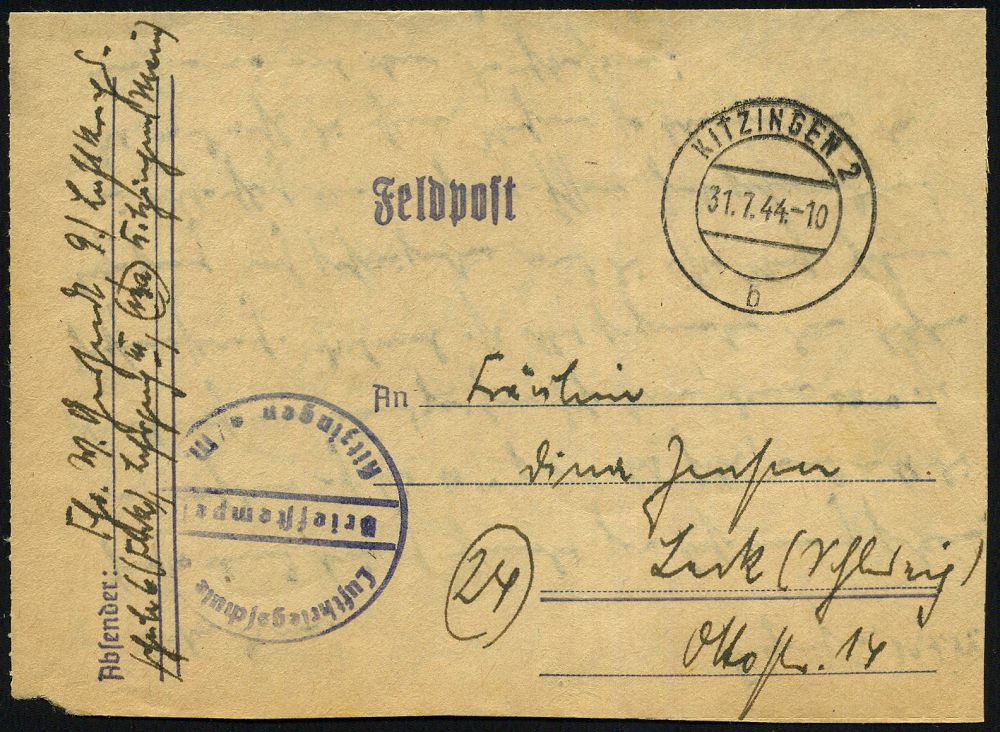 Feldpost
KITZINGEN 2
31.7.44.-10
b
An Fräulein
Dina Jensen
(24) Leck (Schleswig)
Ottostr. 14
Luftkriegsschule
Briefstempel
Kitzingen a/M
Absender: Fhr. W. 9./Luftkriegs-
schule 6
Kitzingen/Main